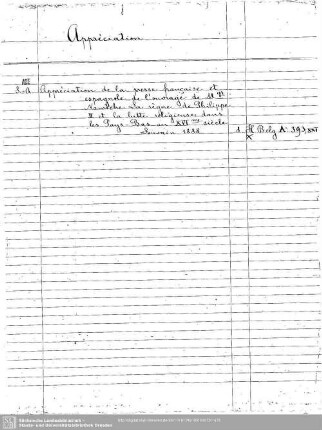 Appréciation
Appréciation de la presse française et
espagnole de l'ouvrage de M
le règne de Philippe
II et la lutte religieuse dans
les Pays-Bas au XVI siècle
Louvain
1 H. Belg. A.
Sächsische Landesbibliothek -
Staats- und Universitätsbibliothek Dresden